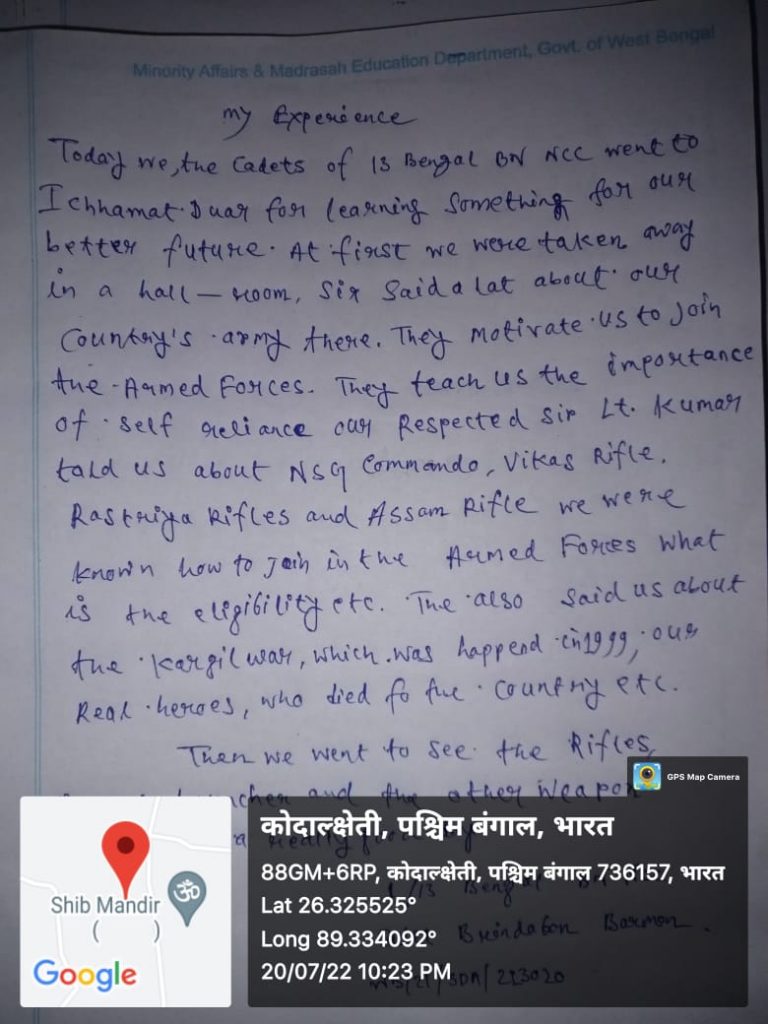 Minority Affairs & Madrasah Education Department, Govt. of West Bengal
my Experience
Today we, the Cadets of 13 Bengal BN NCC went to
Ichhamat Duar for learning something for our
better future. At first we were taken away
in a hall-room, Sir Said a lat about our
Country's army there. They motivate us to join
the Armed Forces. They teach us the importance
of self reliance our Respected Sir Lt. Kumar
told us about NSG Commando, Vikas Rifle.
Rastriya Rifles and Assam Rifle we were
known how to join in the Armed Forces what
is the eligibility etc. The also said us about
the Kargil war, which was happend in 1999, our
Real heroes, who died fo the Country etc.
Then we went to see the Rifles,
and the other weapon
GPS Map Camera
कोदाल्क्षेती, पश्चिम बंगाल, भारत
88GM+6RP, कोदाल्क्षेती, पश्चिम बंगाल 736157, भारत
Lat 26.325525°
Long 89.334092°
20/07/22 10:23 PM
Shib Mandir
( )
Google
13 Bengal
Brindabon Barmon.
213020